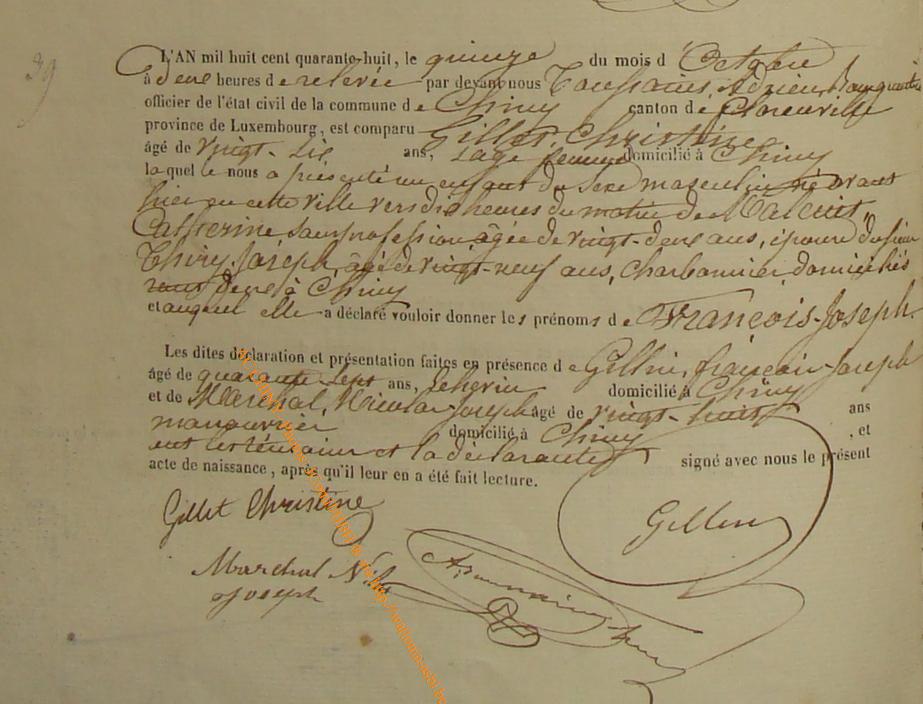 39
L'AN mil huit cent quarante-huit, le quinze du mois d'Octobre
à deux heures de relevée par devant nous Toussaint, Adrien
officier de l'état civil de la commune de Chiny canton de Florenville
province de Luxembourg, est comparu Gillet, Christine
âgé de vingt-six ans, sage femme domicilié à Chiny
laquelle nous a présenté un enfant du sexe masculin né avant
hier en cette ville vers dix heures du matin de
Catherine, sans profession, âgée de vingt-deux ans, épouse du sieur
Thiry, Joseph, âgé de vingt-neuf ans, charbonnier, domiciliés
deux à Chiny
et auquel elle a déclaré vouloir donner les prénoms de François-Joseph.
Les dites déclaration et présentation faites en présence de François-Joseph
âgé de quarante-sept ans, domicilié à Chiny
et de Maréchal, Nicolas-Joseph âgé de vingt-huit ans
manouvrier domicilié à Chiny, et
ont les témoins et la déclarante signé avec nous le présent
acte de naissance, après qu'il leur en a été fait lecture.
Gillet Christine
Marchal
Joseph